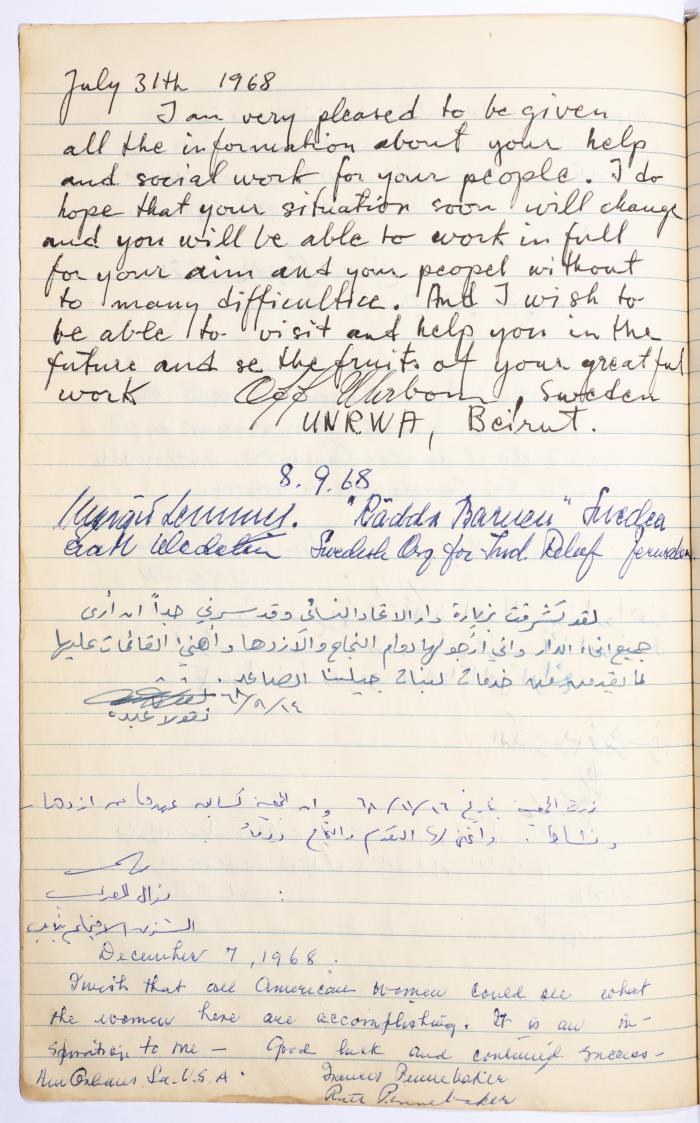 July 31th 1968
I am very pleased to be given
all the information about your help
and social work for your people. I do
hope that your situation soon will change
and you will be able to work in full
for your aim and your peopel without
to many difficultice. And I wish to
be able to visit and help you in the
future and se the fruits of your greatful
work , Sweden
UNRWA, Beirut.
8.9.68
"Rädda Barnen" Sweden
Swedish Org for Ind. Relief Jerusalem.
لقد تشرفت بزيارة دار الاتحاد النسائي وقد سرني جداً ان أرى
جميع انحاء الدار واني ارجو لها دوام النجاح والازدهار وأهنئ القائمات عليها
لما يقدمن من خدمات لبنات جيلنا الصاعد.
نقولا عبده
زرت الجمعية بتاريخ ١٦/١١/٦٨ وان الجمعية كسابق عهدها من ازدهار
ونشاط. واتمنى لها التقدم والنجاح
December 7, 1968.
I wish that all American women could see what
the women here are accomplishing. It is an in-
spiration to me – Good luck and continued success –
New Orleans, La. U.S.A. Frances Pennebaker
Ruth Pennebaker